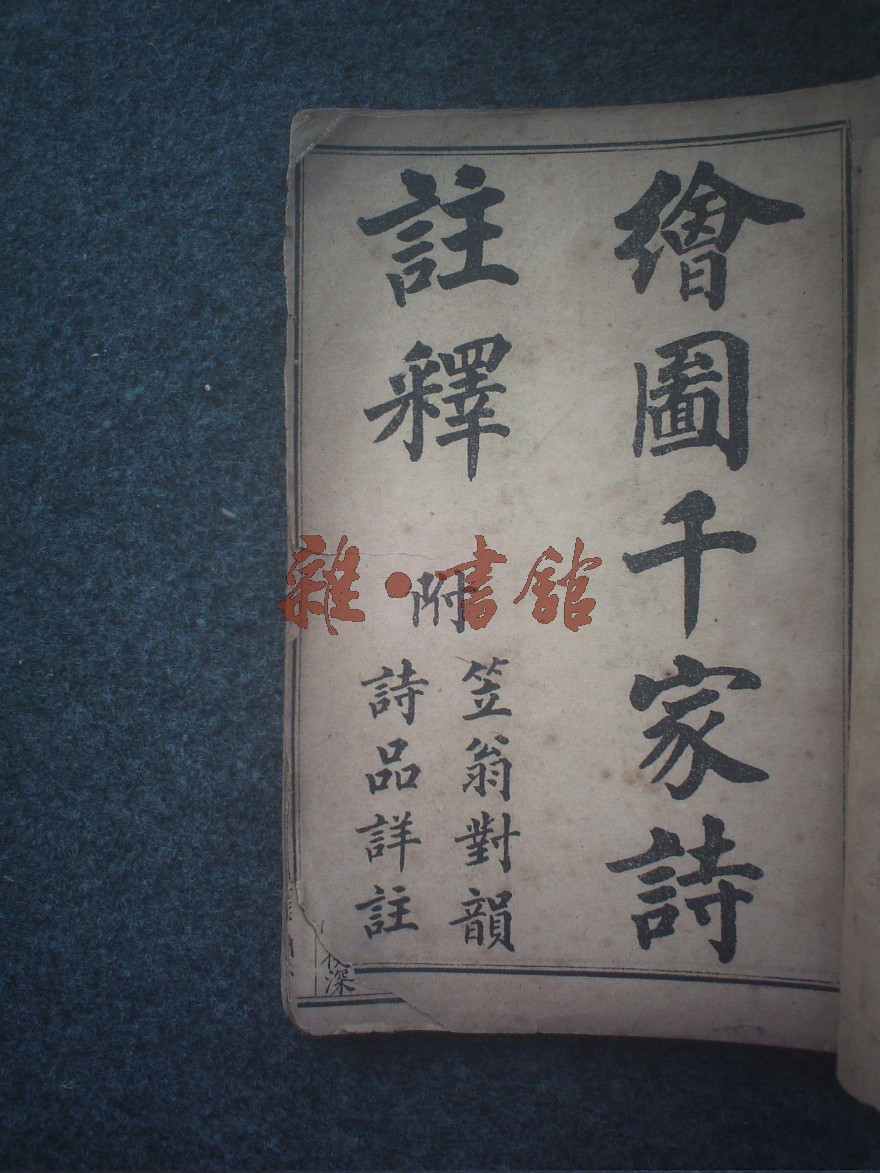 繪圖千家詩
註釋
附
笠翁對韻
詩品詳註
雜·書館
深